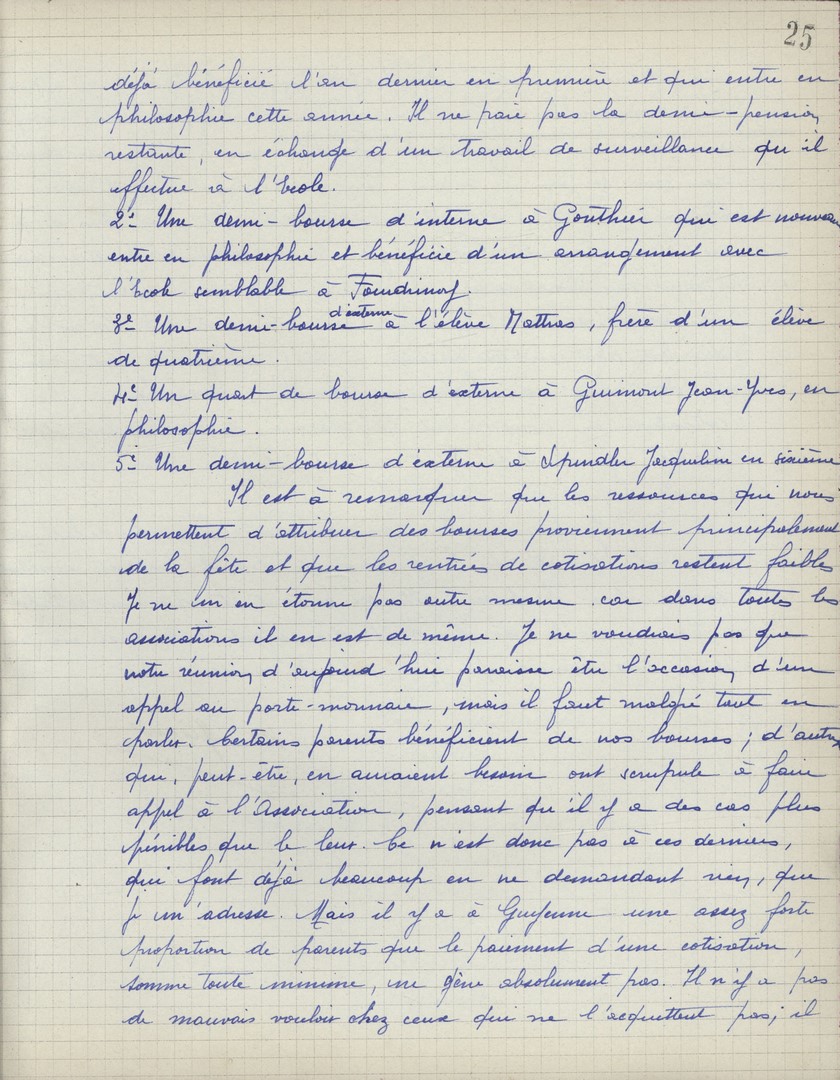 25
déjà bénéficié l'an dernier en première et qui entre en
philosophie cette année. Il ne paie pas la demi-pension
restante, en échange d'un travail de surveillance qu'il
effectue à l'Ecole.
2e- Une demi-bourse d'interne à Gouthier qui est nouveau
entre en philosophie et bénéficie d'un arrangement avec
l'Ecole semblable à
3e- Une demi-bourse d'externe à l'élève Mathas, frère d'un élève
de quatrième.
4e- Un quart de bourse d'externe à Guimont Jean-Yves, en
philosophie.
5e- Une demi-bourse d'externe à Spindler Jacqueline en sixième
Il est à remarquer que les ressources qui nous
permettent d'attribuer des bourses proviennent principalement
de la fête et que les rentrées de cotisations restent faibles
Je ne m'en étonne pas outre mesure car dans toutes les
associations il en est de même. Je ne voudrais pas que
notre réunion d'aujourd'hui paraisse être l'occasion d'un
appel au porte-monnaie, mais il faut malgré tout en
parler. Certains parents bénéficient de nos bourses ; d'autres
qui, peut-être, en auraient besoin ont scrupule à faire
appel à l'Association, pensant qu'il y a des cas plus
pénibles que le leur. Ce n'est donc pas à ces derniers,
qui font déjà beaucoup en ne demandant rien, que
je m'adresse. Mais il y a à Guyenne une assez forte
proportion de parents que le paiement d'une cotisation,
somme toute minime, ne gêne absolument pas. Il n'y a pas
de mauvais vouloir chez ceux qui ne l'acquittent pas ; il